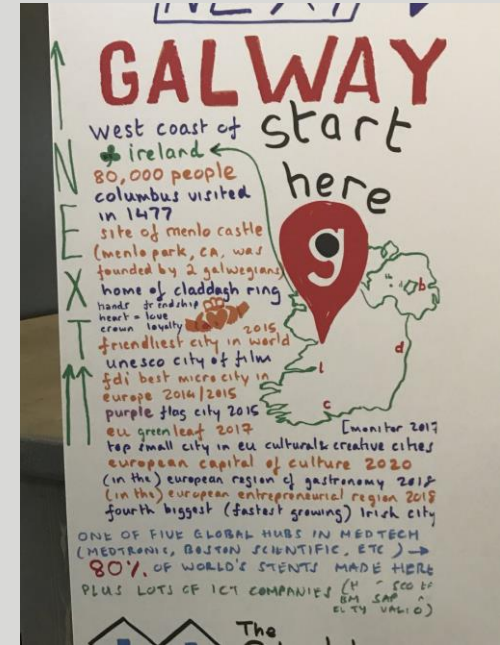 NEXT
GALWAY
start
here
west coast of
ireland
80,000 people
columbus visited
in 1477
site of menlo castle
(menlo park, CA, was
founded by 2 galwegians)
home of claddagh ring
hands friendship
heart = love
crown loyalty
2015
friendliest city in world
unesco city of film
fdi best micro city in
europe 2014/2015
purple flag city 2015
eu green leaf 2017
[monitor 2017
top small city in eu cultural & creative cities
european capital of culture 2020
(in the) european region of gastronomy 2018
(in the) european entrepreneurial region 2018
fourth biggest (fastest growing) Irish city
ONE OF FIVE GLOBAL HUBS IN MEDTECH
(MEDTRONIC, BOSTON SCIENTIFIC, ETC)
80% OF WORLD'S STENTS MADE HERE
PLUS LOTS OF ICT COMPANIES
SAP
NEXT
g
b
d
l
c
The